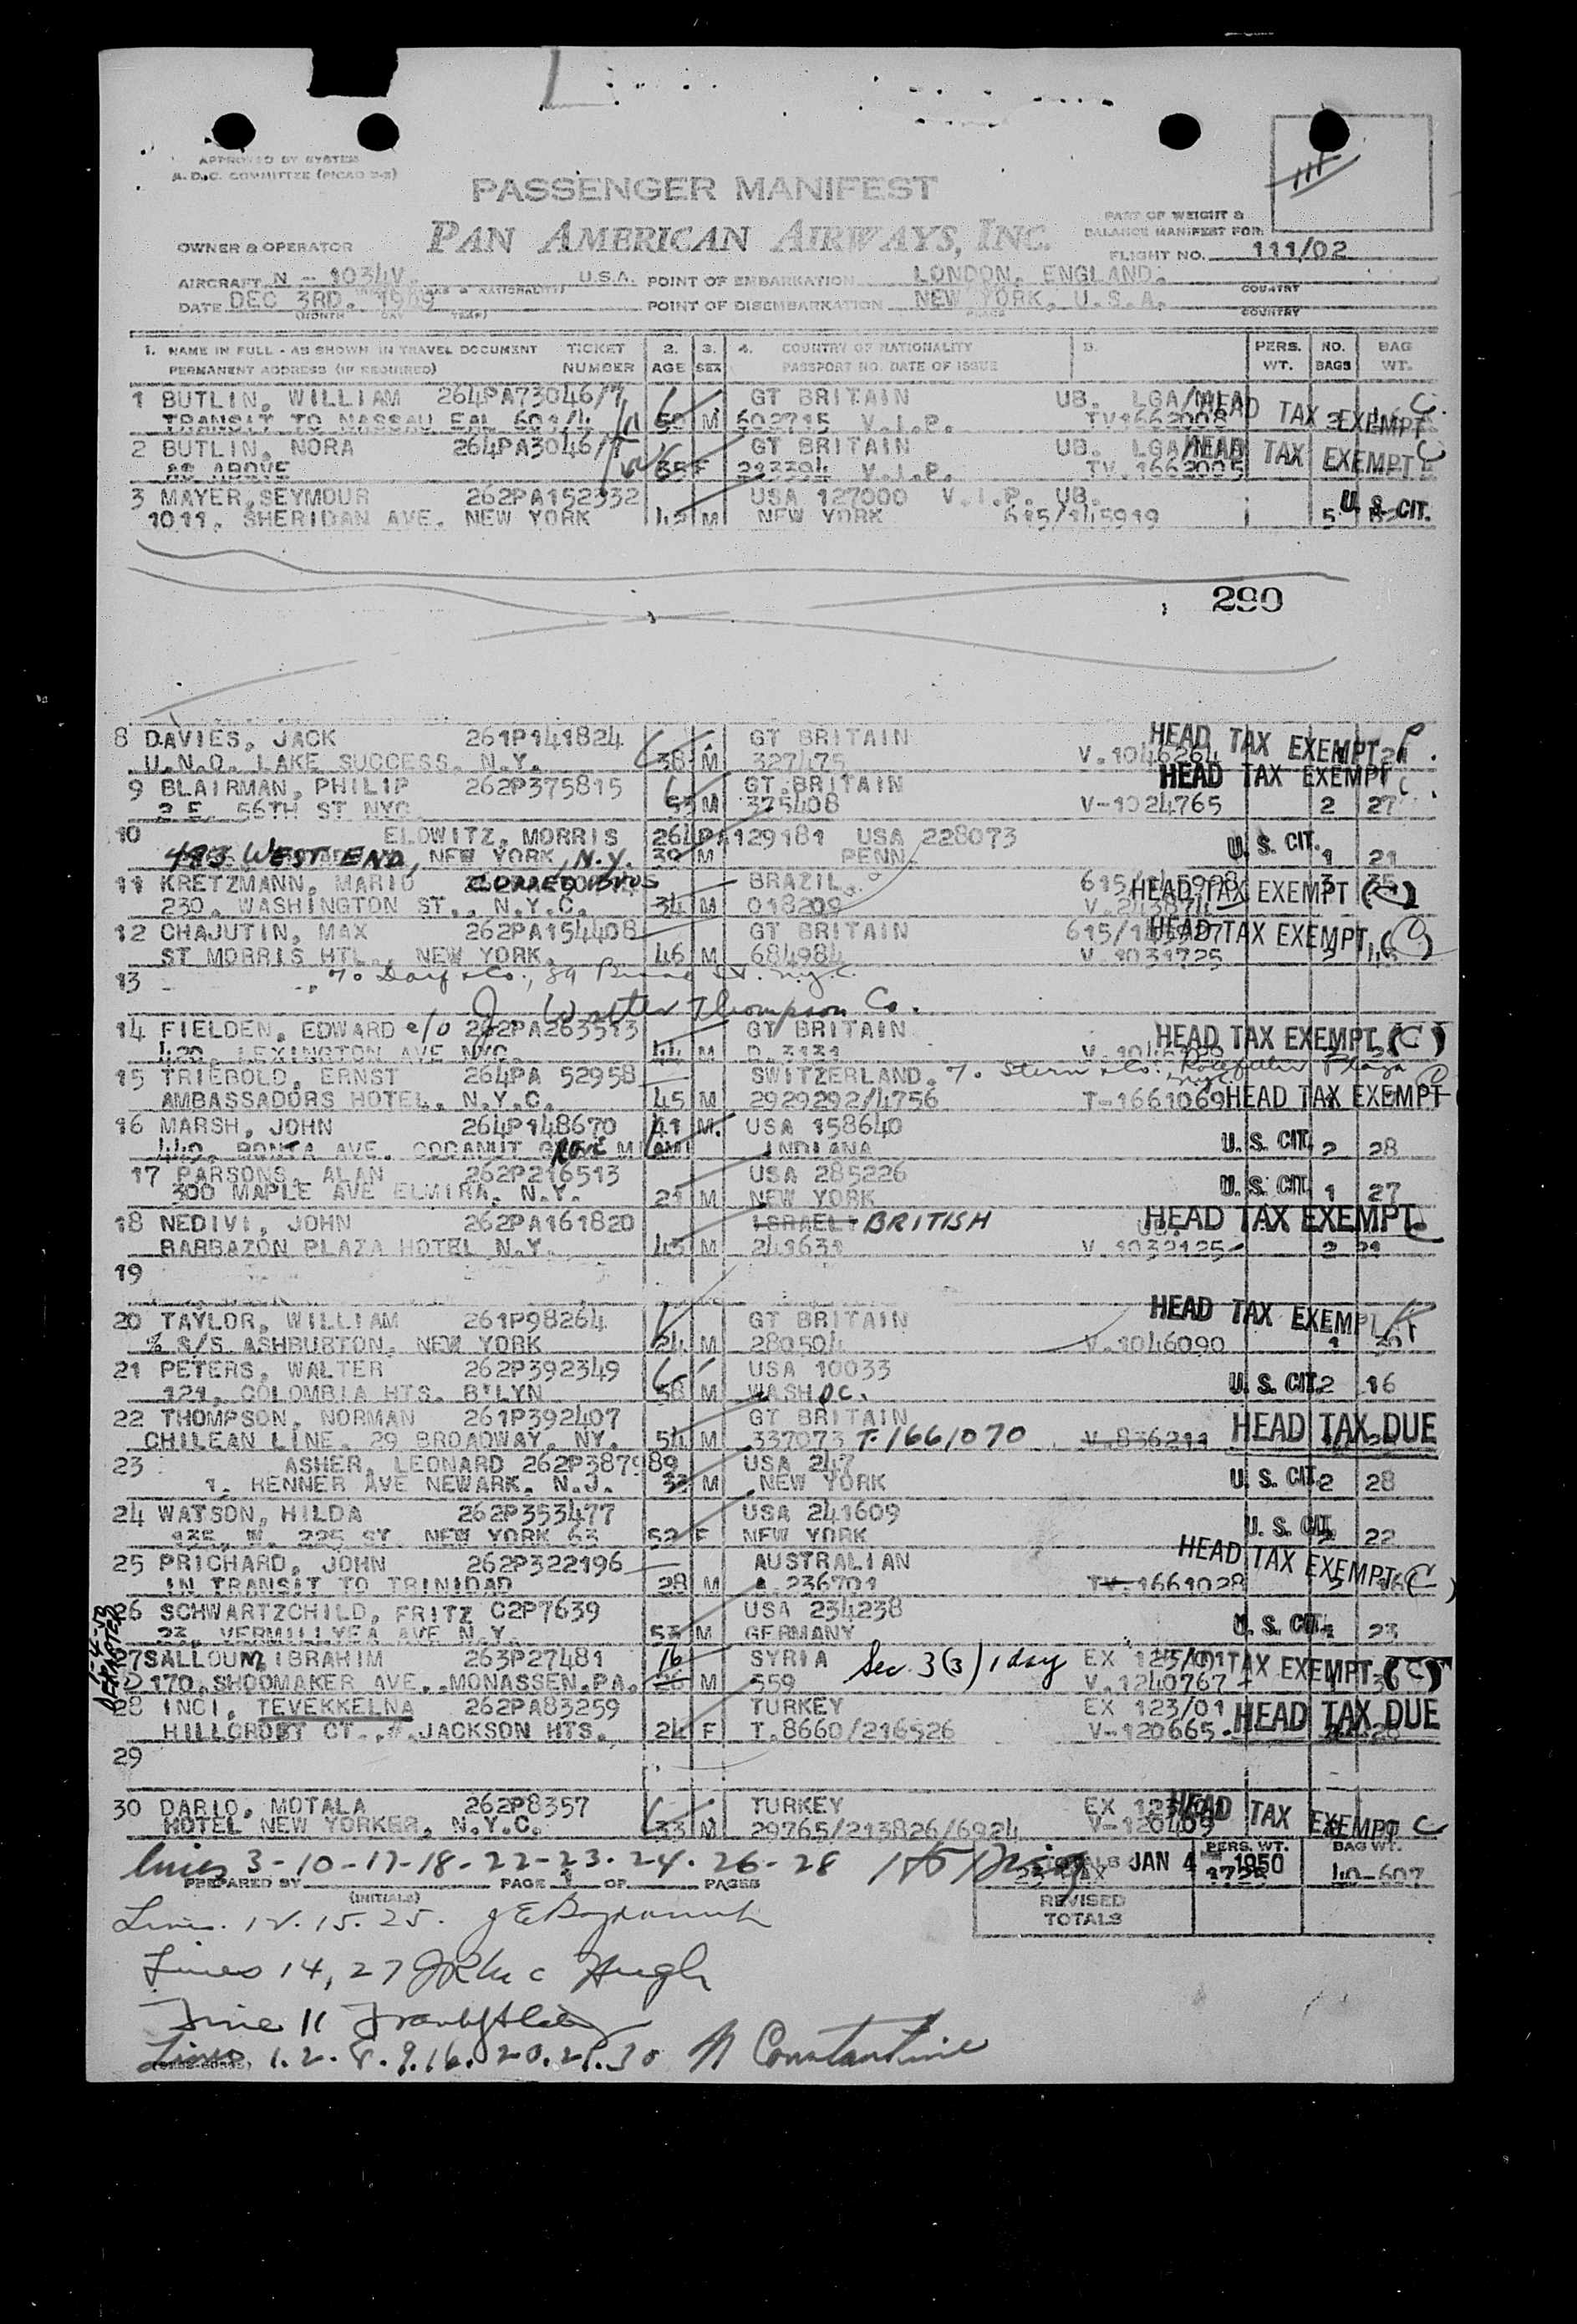 APPROVED BY SYSTEM
A.D.C. COMMITTEE (PICAO 2-2)
PASSENGER MANIFEST
PAN AMERICAN AIRWAYS, INC.
PART OF WEIGHT &
BALANCE MANIFEST FOR
OWNER & OPERATOR
FLIGHT NO. 111/02
AIRCRAFT N - 1034V. U.S.A. POINT OF EMBARKATION LONDON, ENGLAND.
COUNTRY
DATE DEC 3RD. 1949 POINT OF DISEMBARKATION NEW YORK, U.S.A.
(MONTH DAY YEAR) PLACE COUNTRY
1. NAME IN FULL - AS SHOWN IN TRAVEL DOCUMENT TICKET 2. 3. 4. COUNTRY OF NATIONALITY 5. PERS. NO. BAG
PERMANENT ADDRESS (IF REQUIRED) NUMBER AGE SEX PASSPORT NO. DATE OF ISSUE WT. BAGS WT.
1 BUTLIN, WILLIAM 264PA73046/7 GT BRITAIN UB. LGA/MIA HEAD TAX EXEMPT C.
TRANSIT TO NASSAU EAL 601/4 50 M 602715 V.I.P. TV1662008
2 BUTLIN, NORA 264PA3046/7 GT BRITAIN UB. LGA HEAD TAX EXEMPT C
AS ABOVE 35 F 213394 V.I.P. TV.1662005
3 MAYER, SEYMOUR 262PA152332 USA 127000 V.I.P. UB. U. S. CIT.
1011, SHERIDAN AVE. NEW YORK M NEW YORK 615/145919 5
290
8 DAVIES, JACK 261P141824 GT BRITAIN HEAD TAX EXEMPT
U.N.O. LAKE SUCCESS, N.Y. 38 M 327475 V.1046264
9 BLAIRMAN, PHILIP 262P375815 GT.BRITAIN HEAD TAX EXEMPT C
2 E. 56TH ST NYC 53 M 375408 V-1024765 2 27
10 ELOWITZ, MORRIS 264PA129181 USA 228073 U. S. CIT.
493 WEST END, NEW YORK, N.Y. 39 M PENN. 1 21
11 KRETZMANN, MARIO BRAZIL. HEAD TAX EXEMPT (C)
230, WASHINGTON ST., N.Y.C. 34 M 018209
12 CHAJUTIN, MAX 262PA154408 GT BRITAIN HEAD TAX EXEMPT (C)
ST MORRIS HTL., NEW YORK. 46 M 684984 V.1031725
13 % Day & Co., 89 Broad St. N.Y.C.
J. Walter Thompson Co.
14 FIELDEN, EDWARD c/o 262PA263513 GT BRITAIN HEAD TAX EXEMPT (C)
420, LEXINGTON AVE NYC. 44 M D.3131
15 TRIEBOLD, ERNST 264PA 52958 SWITZERLAND. % Stern & Co. Plaza
AMBASSADORS HOTEL, N.Y.C. 45 M 2929292/4756 T-1661069 HEAD TAX EXEMPT
16 MARSH, JOHN 264P148670 41 M. USA 158640
440, AVE. COCANUT GROVE MIAMI INDIANA U. S. CIT. 2 28
17 PARSONS, ALAN 262P216513 USA 285226
300 MAPLE AVE ELMIRA, N.Y. 21 M NEW YORK U. S. CIT. 1 27
18 NEDIVI, JOHN 262PA161820 ISRAELI BRITISH HEAD TAX EXEMPT C
BARBAZON PLAZA HOTEL N.Y. 43 M 241631 V.1032125 2 21
19
20 TAYLOR, WILLIAM 261P98264 GT BRITAIN HEAD TAX EXEMPT
% S/S ASHBURTON, NEW YORK 24 M 280504 V.1046090 1 30
21 PETERS, WALTER 262P392349 USA 10033
121, COLOMBIA HTS. B'LYN 58 M WASH D.C. U. S. CIT. 2 16
22 THOMPSON, NORMAN 261P392407 GT BRITAIN HEAD TAX DUE
CHILEAN LINE, 29 BROADWAY, NY. 54 M 337073 T-1661070 V-836211
23 ASHER, LEONARD 262P387989 USA 247
1, RENNER AVE NEWARK, N.J. 33 M NEW YORK U. S. CIT. 2 28
24 WATSON, HILDA 262P353477 USA 241609
135, W. 225 ST. NEW YORK 63 52 F NEW YORK U. S. CIT. 22
25 PRICHARD, JOHN 262P322196 AUSTRALIAN HEAD TAX EXEMPT (C)
IN TRANSIT TO TRINIDAD 28 M A.236701 TV-1661028
26 SCHWARTZCHILD, FRITZ C2P7639 USA 234238
23, VERMILLYEA AVE N.Y. 53 M GERMANY U. S. CIT. 23
27 SALLOUM, IBRAHIM 263P27481 16 SYRIA Sec. 3(3) 1 day EX 125/01 TAX EXEMPT (C)
170, SHOOMAKER AVE., MONASSEN, PA. 26 M 559 V.1240767
DEPARTED
28 INCI, TEVEKKELNA 262PA83259 TURKEY EX 123/01 HEAD TAX DUE
HILLCROFT CT., JACKSON HTS. 24 F T.8660/216526 V-120665
29
30 DARIO, MOTALA 262P8357 TURKEY EX HEAD TAX EXEMPT C
HOTEL NEW YORKER, N.Y.C. 33 M 29765/213826/6924 V-120409
Lines 3-10-17-18-22-23-24-26-28
TOTALS JAN 4 1950 PERS. WT. BAG WT.
PREPARED BY PAGE 1 OF PAGES 3725 40-607
(INITIALS)
REVISED
TOTALS
Lines. 12. 15. 25.
Lines 14, 27
Line 11
Lines 1. 2. 8. 9. 16. 20. 21. 30 Constantine